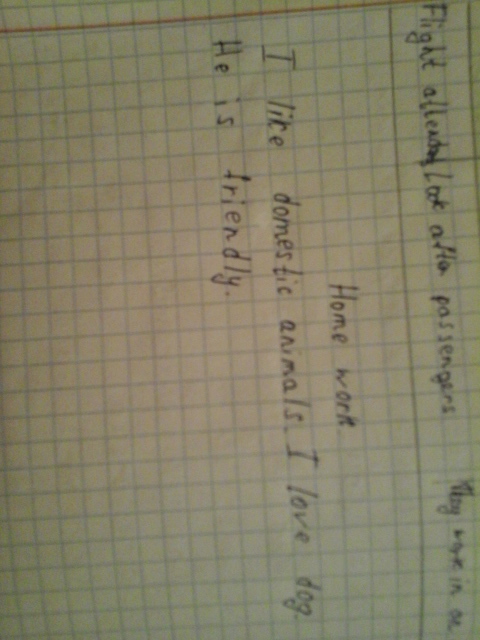 Flight look after passengers They work in
Home work.
I like domestic animals. I love dog.
He is friendly.